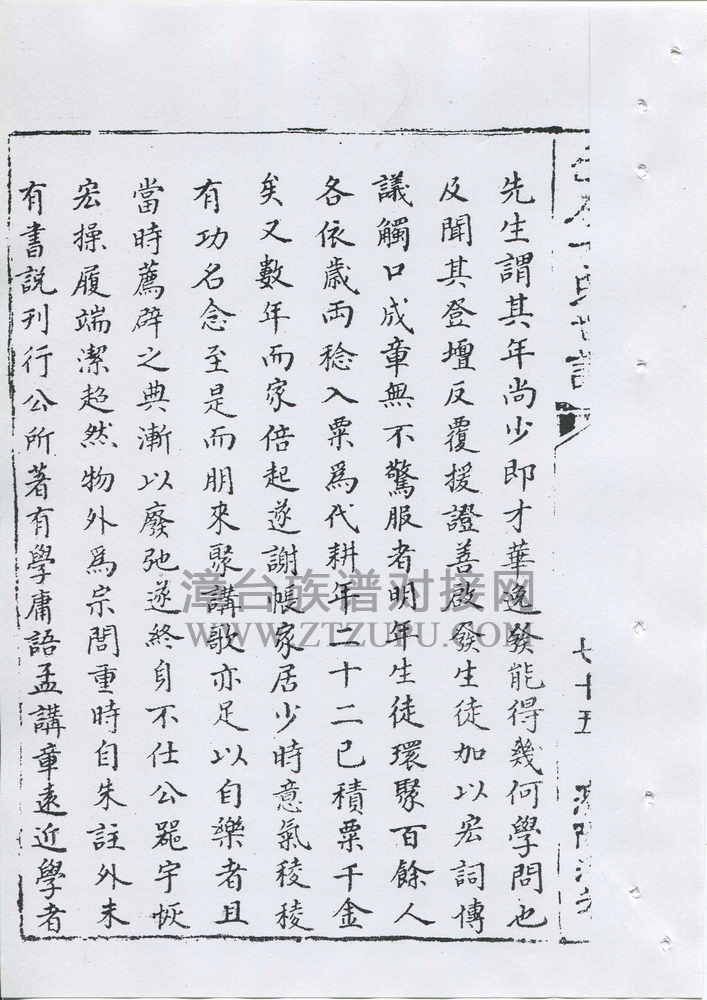 七十五
先生謂其年尚少即才華逸發能得幾何學問也
及聞其登壇反覆援證善啟發生徒加以宏詞傳
議觸口成章無不驚服者明年生徒環聚百餘人
各依歲両稔入粟為代耕年二十二已積粟千金
矣又數年而家倍起遂謝帳家居少時意氣稜稜
有功名念至是而朋來聚講歌亦足以自樂者且
當時薦辟之典漸以廢弛遂終身不仕公器宇恢
宏操履端潔超然物外為宗問重時自朱註外未
有書説刊行公所著有學庸語孟講章遠近學者
漳台族谱对接网
WWW.ZTZUPU.COM